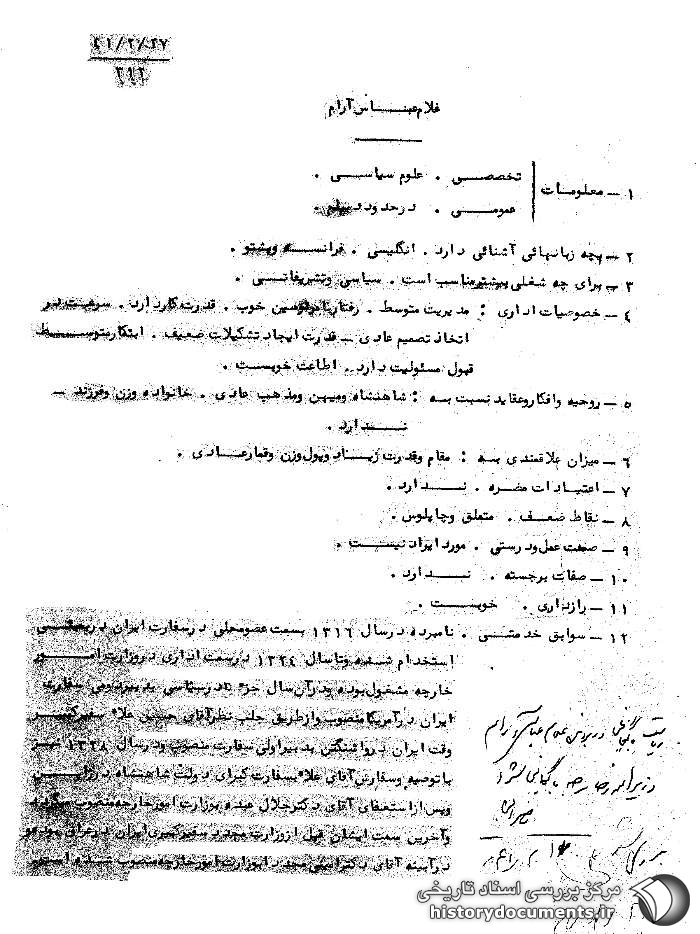 ۴۱/۲/۲۷
۲۹۲
غلام عباس آرام
۱ – معلومات
تخصصی . علوم سیاسی .
عمومی . در حدود دیپلم .
۲ – بچه زبانهائی آشنائی دارد . انگلیسی . فرانسه و پشتو .
۳ – برای چه شغلی بیشتر مناسب است . سیاسی و تشریفاتی .
۴ – خصوصیات اداری : مدیریت متوسط . رفتار با مرئوسین خوب . قدرت کار دارد . سرعت در
اتخاذ تصمیم عادی – قدرت ایجاد تشکیلات ضعیف . ابتکار متوسط
قبول مسئولیت دارد . اطاعت خوبست .
۵ – روحیه و افکار و عقاید نسبت به : شاهنشاه و میهن و مذهب عادی . خانواده و زن و فرزند –
ندارد .
۶ – میزان علاقمندی به : مقام و قدرت زیاد و پول و زن و قمار عادی .
۷ – اعتیادات مضره . ندارد .
۸ – نقاط ضعف . متملق و چاپلوس .
۹ – صحت عمل و درستی . مورد ایراد نیست .
۱۰ – صفات برجسته . ندارد .
۱۱ – رازداری . خوبست .
۱۲ – سوابق خدمتی . نامبرده در سال ۱۳۱۶ بسمت عضو محلی در سفارت ایران در
استخدام شده و تا سال ۱۳۲۴ در سمت اداری در وزارت امور
خارجه مشغول بوده و در آن سال جزء کادر سیاسی به سفارت
ایران در آمریکا منصوب و از طریق جلب نظر آقای حسین علاء سفیر کبیر
وقت ایران در واشنگتن بدبیر اولی سفارت منصوب و در سال ۱۳۲۸ نیز
با توصیه و سفارش آقای علاء سفارت کبرای دولت شاهنشاه در ژاپن
و پس از استعفای آقای دکتر جلال عبده بوزارت امور خارجه منصوب میگردد
و آخرین سمت ایشان قبل از وزارت مجدد سفیر کبیری ایران در عراق بوده و
در کابینه آقای دکتر امینی مجددا بوزارت امور خارجه منصوب شده است
مرکز بررسی اسناد تاریخی
historydocuments.ir